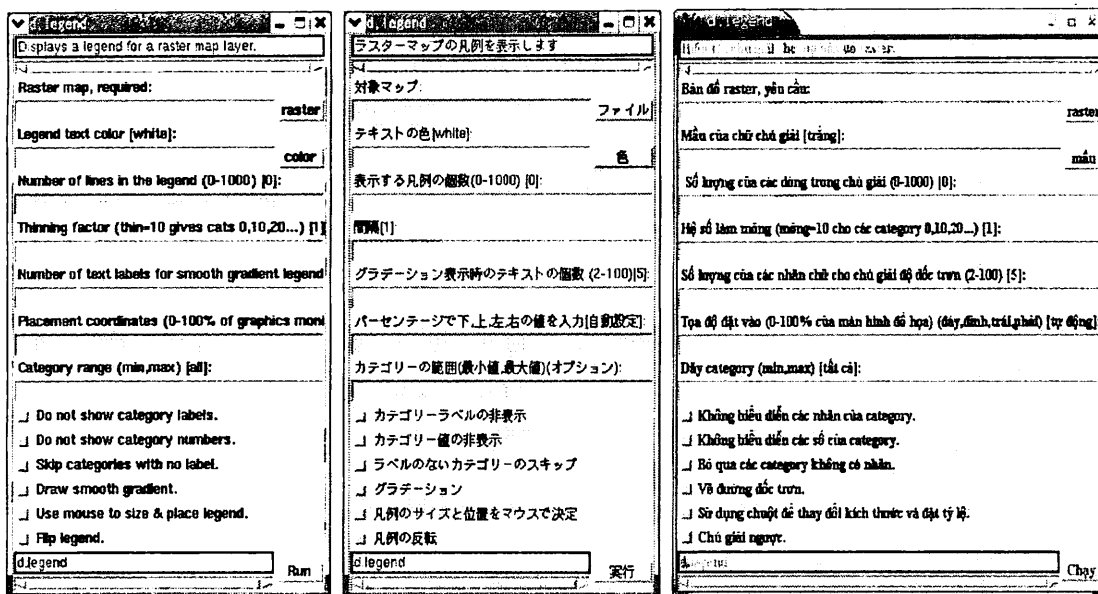 d.legend
Displays a legend for a raster map layer.
Raster map, required:
raster
Legend text color [white]:
color
Number of lines in the legend (0-1000) [0]:
Thinning factor (thin=10 gives cats 0,10,20...) [1]
Number of text labels for smooth gradient legend
Placement coordinates (0-100% of graphics moni
Category range (min,max) [all]:
Do not show category labels.
Do not show category numbers.
Skip categories with no label.
Draw smooth gradient.
Use mouse to size & place legend.
Flip legend.
d.legend
Run
d.legend
ラスターマップの凡例を表示します
対象マップ:
ファイル
テキストの色[white]:
色
表示する凡例の個数(0-1000) [0]:
間隔[1]:
グラデーション表示時のテキストの個数 (2-100)[5]:
パーセンテージで下,上,左,右の値を入力[自動設定]:
カテゴリーの範囲(最小値,最大値)(オプション):
カテゴリーラベルの非表示
カテゴリー値の非表示
ラベルのないカテゴリーのスキップ
グラデーション
凡例のサイズと位置をマウスで決定
凡例の反転
d.legend
実行
d.legend
Bản đồ raster, yêu cầu:
raster
Mầu của chữ chú giải [trắng]:
mầu
Số lượng của các dòng trung chú giải (0-1000) [0]:
Hệ số làm mỏng (mỏng=10 cho các category 0,10,20...) [1]:
Số lượng của các nhãn chữ cho chú giải độ dốc trơn (2-100) [5]:
Tọa độ đặt vào (0-100% của màn hình đồ họa) (đáy,đỉnh,trái,phải) [tự động]
Dãy category (min,max) [tất cả]:
Không biểu diễn các nhãn của category.
Không biểu diễn các số của category.
Bỏ qua các category không có nhãn.
Vẽ đường dốc trơn.
Sử dụng chuột để thay đổi kích thước và đặt tỷ lệ.
Chú giải ngược.
d.legend
Chạy